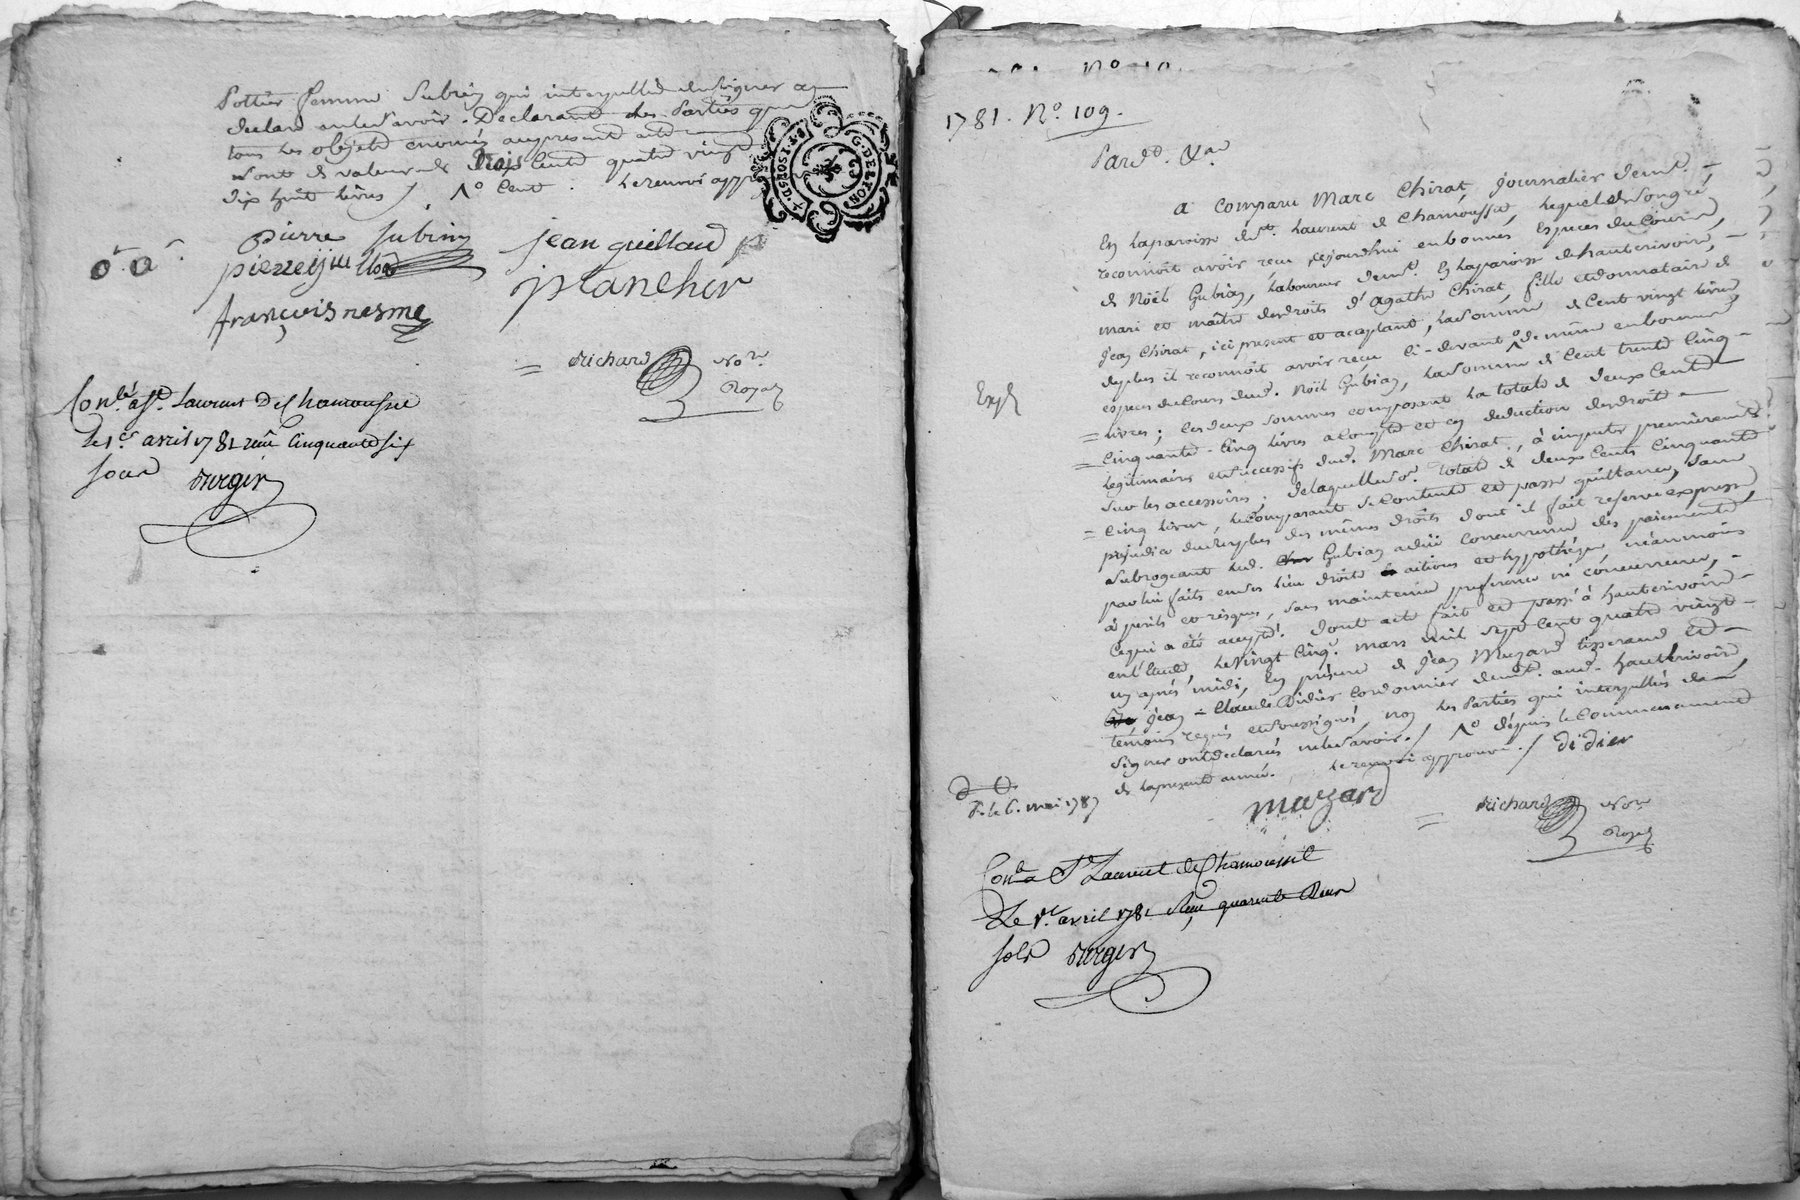 pottier femme Subrin qui interpellée de signer a
declaré ne le savoir. Declarant les Parties que
tous les objets enoncés au present acte
sont de valeur de trois Cents quatre vingt
dix huit livres /. Cent. le renvoi app
pierre subrin
jean guillaud
pierre guillod
jplancher
françois nesme
Richard No.re
Royal
Con.lé a St. Laurent De Chamousset
le 1.er avril 1781 reçu Cinquante six
sous Durger
G. DE LYON
1781. N.o 109.
Pard.t &.a
a comparu Marc Chirat, journalier dem.t
En la paroisse de St. Laurent de Chamousset, lequel de son gré,
reconnoit avoir reçu cejourd'hui en bonnes Especes du Cours,
de Noël Gubian, laboureur dem.t En la paroisse de hauterivoire,
mari et maitre des droits d'agathe Chirat, fille et donnataire de
Jean Chirat, ici present et acceptant, la somme de Cent vingt livres,
de plus il reconnoit avoir reçu ci-devant de même en bonnes
especes du Cours dud. Noël Gubian, la somme de Cent trente Cinq
livres; les deux sommes composant la totale de deux Cents
Cinquante-Cinq livres a compte et en deduction des droits
legitimaires et successifs dud. Marc Chirat, à imputer premierement
sur les accessoires; de laquelle so. totale de deux Cents Cinquante
Cinq livres, le Comparant se contente et passe quittance, sans
prejudice du surplus des mêmes droits dont il fait reserve expresse
subrogeant led. Gubian a dûe concurrence des paiements
par lui faits en ses lieu droits actions et hypotheque neanmoins
à perils et risques, sans maintenue preference ni concurrence,
Ce qui a été accepté. Dont acte fait et passé à hauterivoire
en l'etude, le Vingt Cinq. mars mil sept Cent quatre vingt
un après midi, En présence de Jean Muzard tisserand et
Jean-Claude Didier Cordonnier dem.t aud. hauterivoire,
temoins requis et soussignés, non les Parties qui interpellées de
signer ont declarés ne le savoir. / depuis le Commencement
de la presente année. le renvoi approuvé. / didier
Exp.é
F. le 6. mai 1787
muzard
Richard No.re
Royal
Con.lé a St. Laurent de Chamousset
Le 1.er avril 1781 Reçu quarante Deux
sols Durger